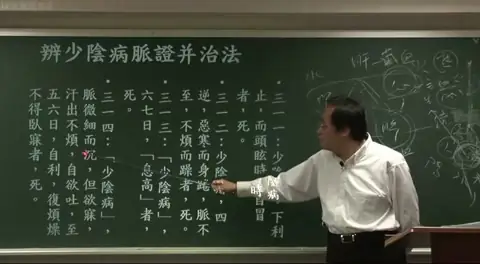 辨少陰病脈證并治法
・三一一：少陰病，下利
止，而頭眩時時自冒
者，死。
・三一二：少陰病，四
逆，惡寒而身踡，脈不
至，不煩而躁者，死。
・三一三：「少陰病」，
六七日，「息高」者，
死。
・三一四：「少陰病」，
脈微細而沉，但欲寐，
汗出不煩，自欲吐，至
五六日，自利，復煩燥
不得臥寐者，死。